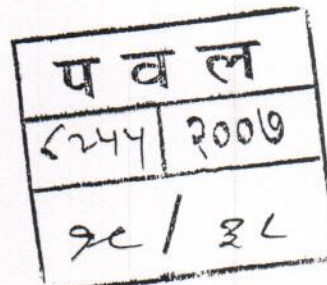 प व ल
८२५५ २००७
१८ / ३८